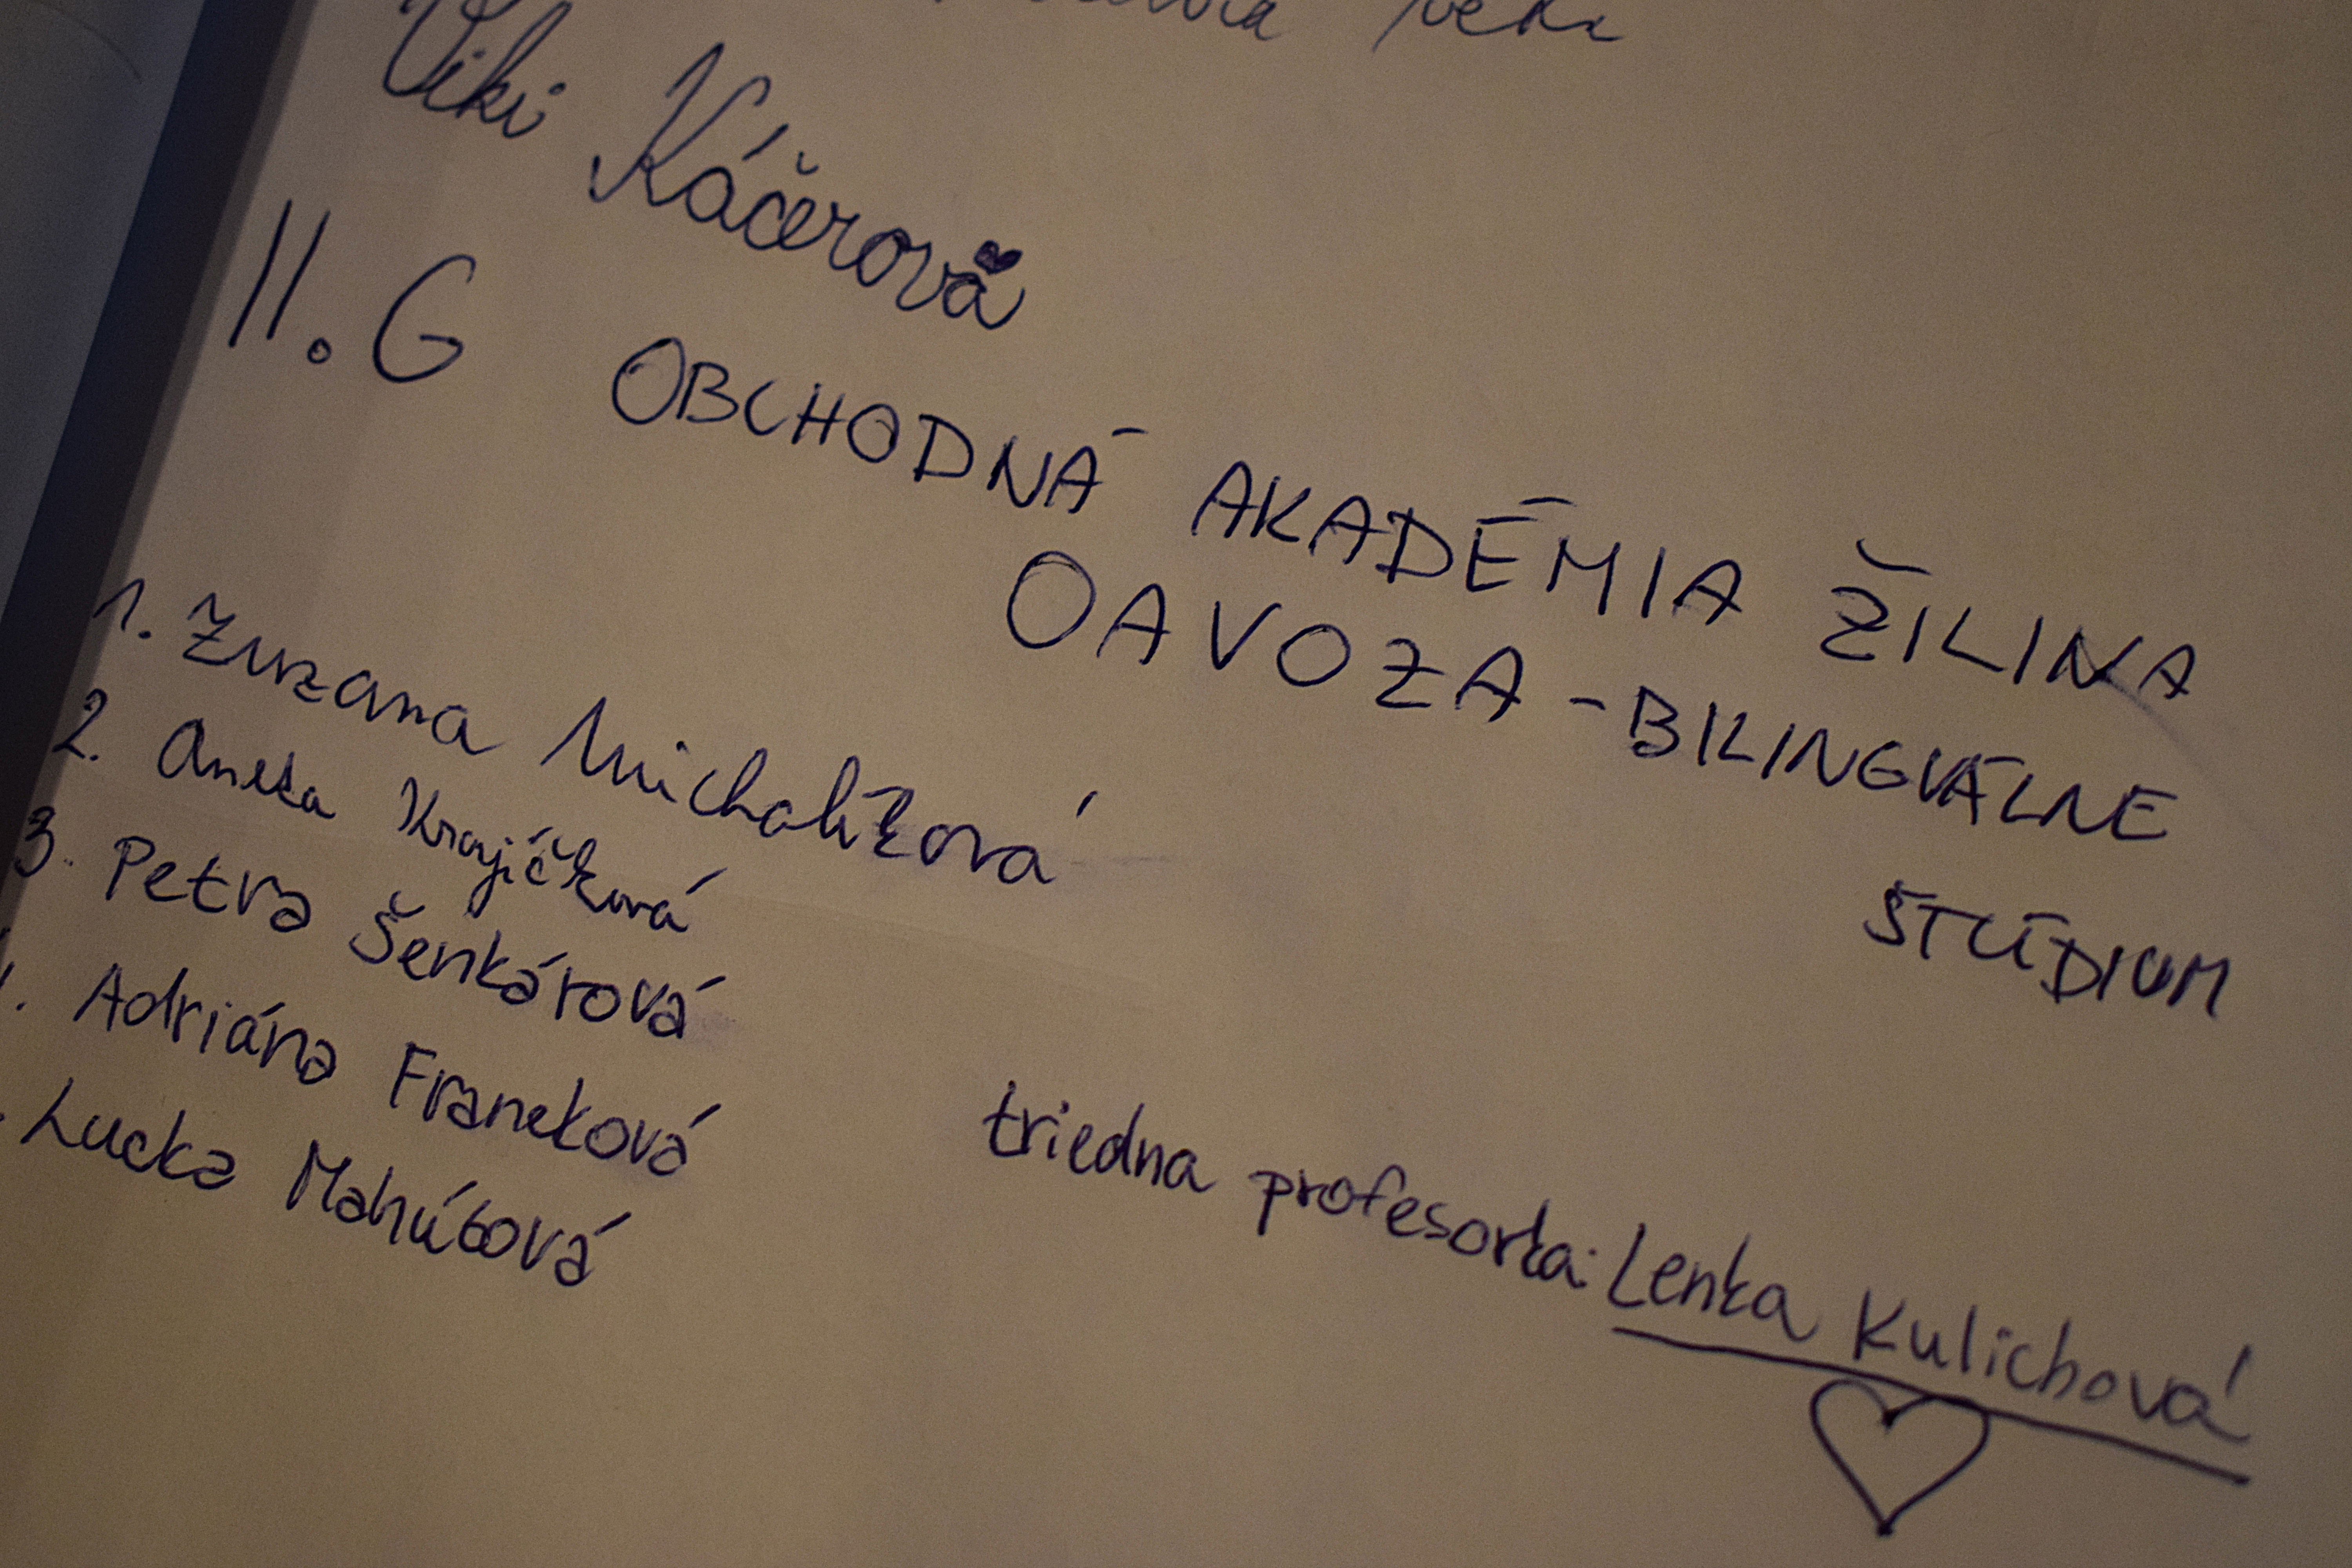 Viki Káčerová
II. G OBCHODNÁ AKADÉMIA ŽILINA
OAVOZA - BILINGVÁLNE
ŠTÚDIUM
1. Zuzana Michalíková
2. Aneta Krajíčková
3. Petra Šenkárová
Adriána Franeková
Lucka Mahútová
triedna profesorka: Lenka Kulichová